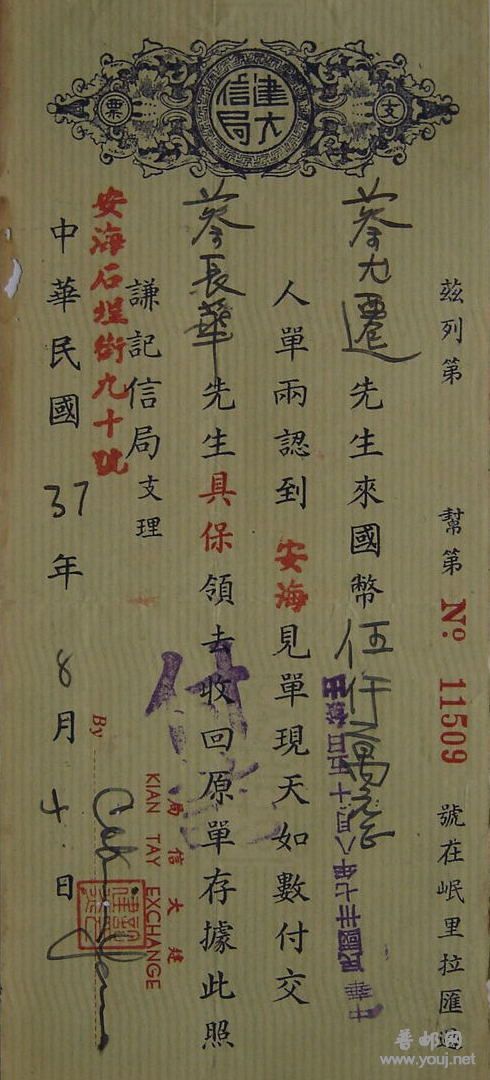 建大信局
支票
茲列第 幫第 No. 11509 號在岷里拉匯過
蔡九遷先生來國幣伍仟萬元正
人單兩認到安海見單現天如數付交
蔡長華先生具保領去收回原單存據此照
謙記信局支理
安海石埕街九十號
中華民國37年8月4日
中華民國卅七年八月十五日
付
建大信局
KIAN TAY EXCHANGE
By
普邮网
www.youj.net